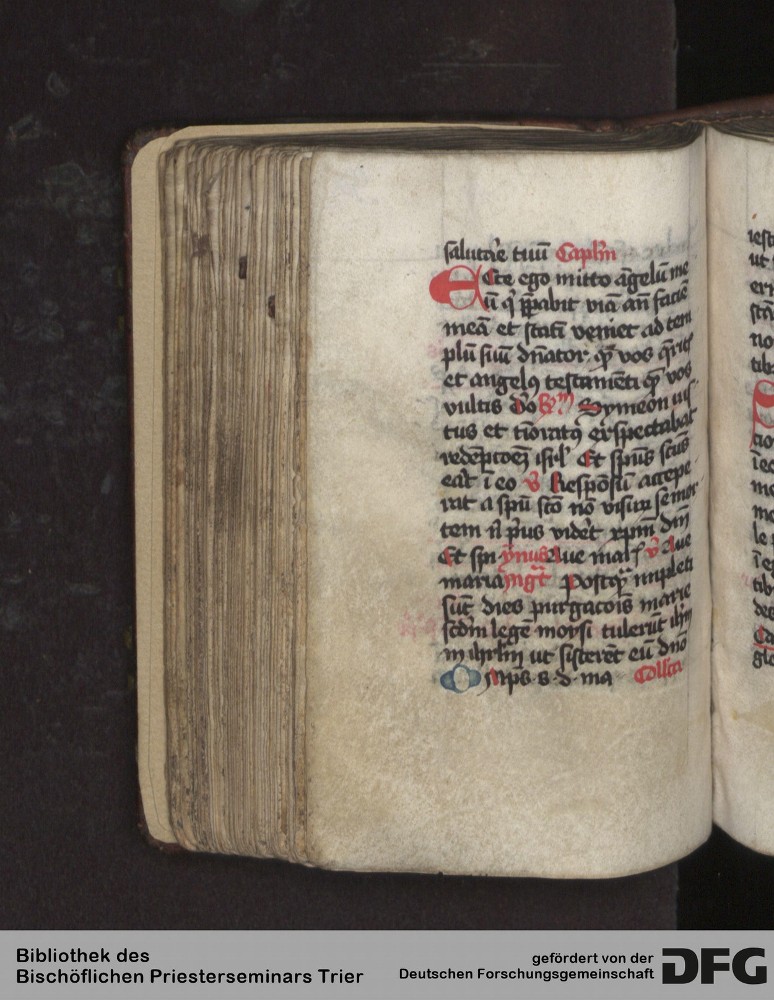 salutare tuū Caplm̄
Ecce ego mitto āgelū me
ū q̇ p̄pabit viā an̄ faciē
meā et statī veniet ad tem
plū suū dn̄ator q̄ vos q̄rit
et angelꝰ testamēti q̄ vos
vultis do Symeon ius
tus et tīoratꝰ exspectabat
redēptoeȝ isrl̄ Et spūs scūs
erat ī eo v̄ Respōsū accepe
rat a spū scō nō visurū se mor
tem n̄ p̄us videt xpm̄ dn̄i
Et spū ymnus Aue mar v̄ Aue
maria mgt̄ Postq̄ impleti
sūt dies purgacōis marie
scdm̄ legē moysi tulerūt ihm̄
in ihrlm̄ ut sisterēt eū dnō
Omps s d ma Collcā
iest
ut
ern
stā
no
tib
tio
ī eo
mo
me
le
tib
des
glo
Bibliothek des
Bischöflichen Priesterseminars Trier
gefördert von der
Deutschen Forschungsgemeinschaft DFG